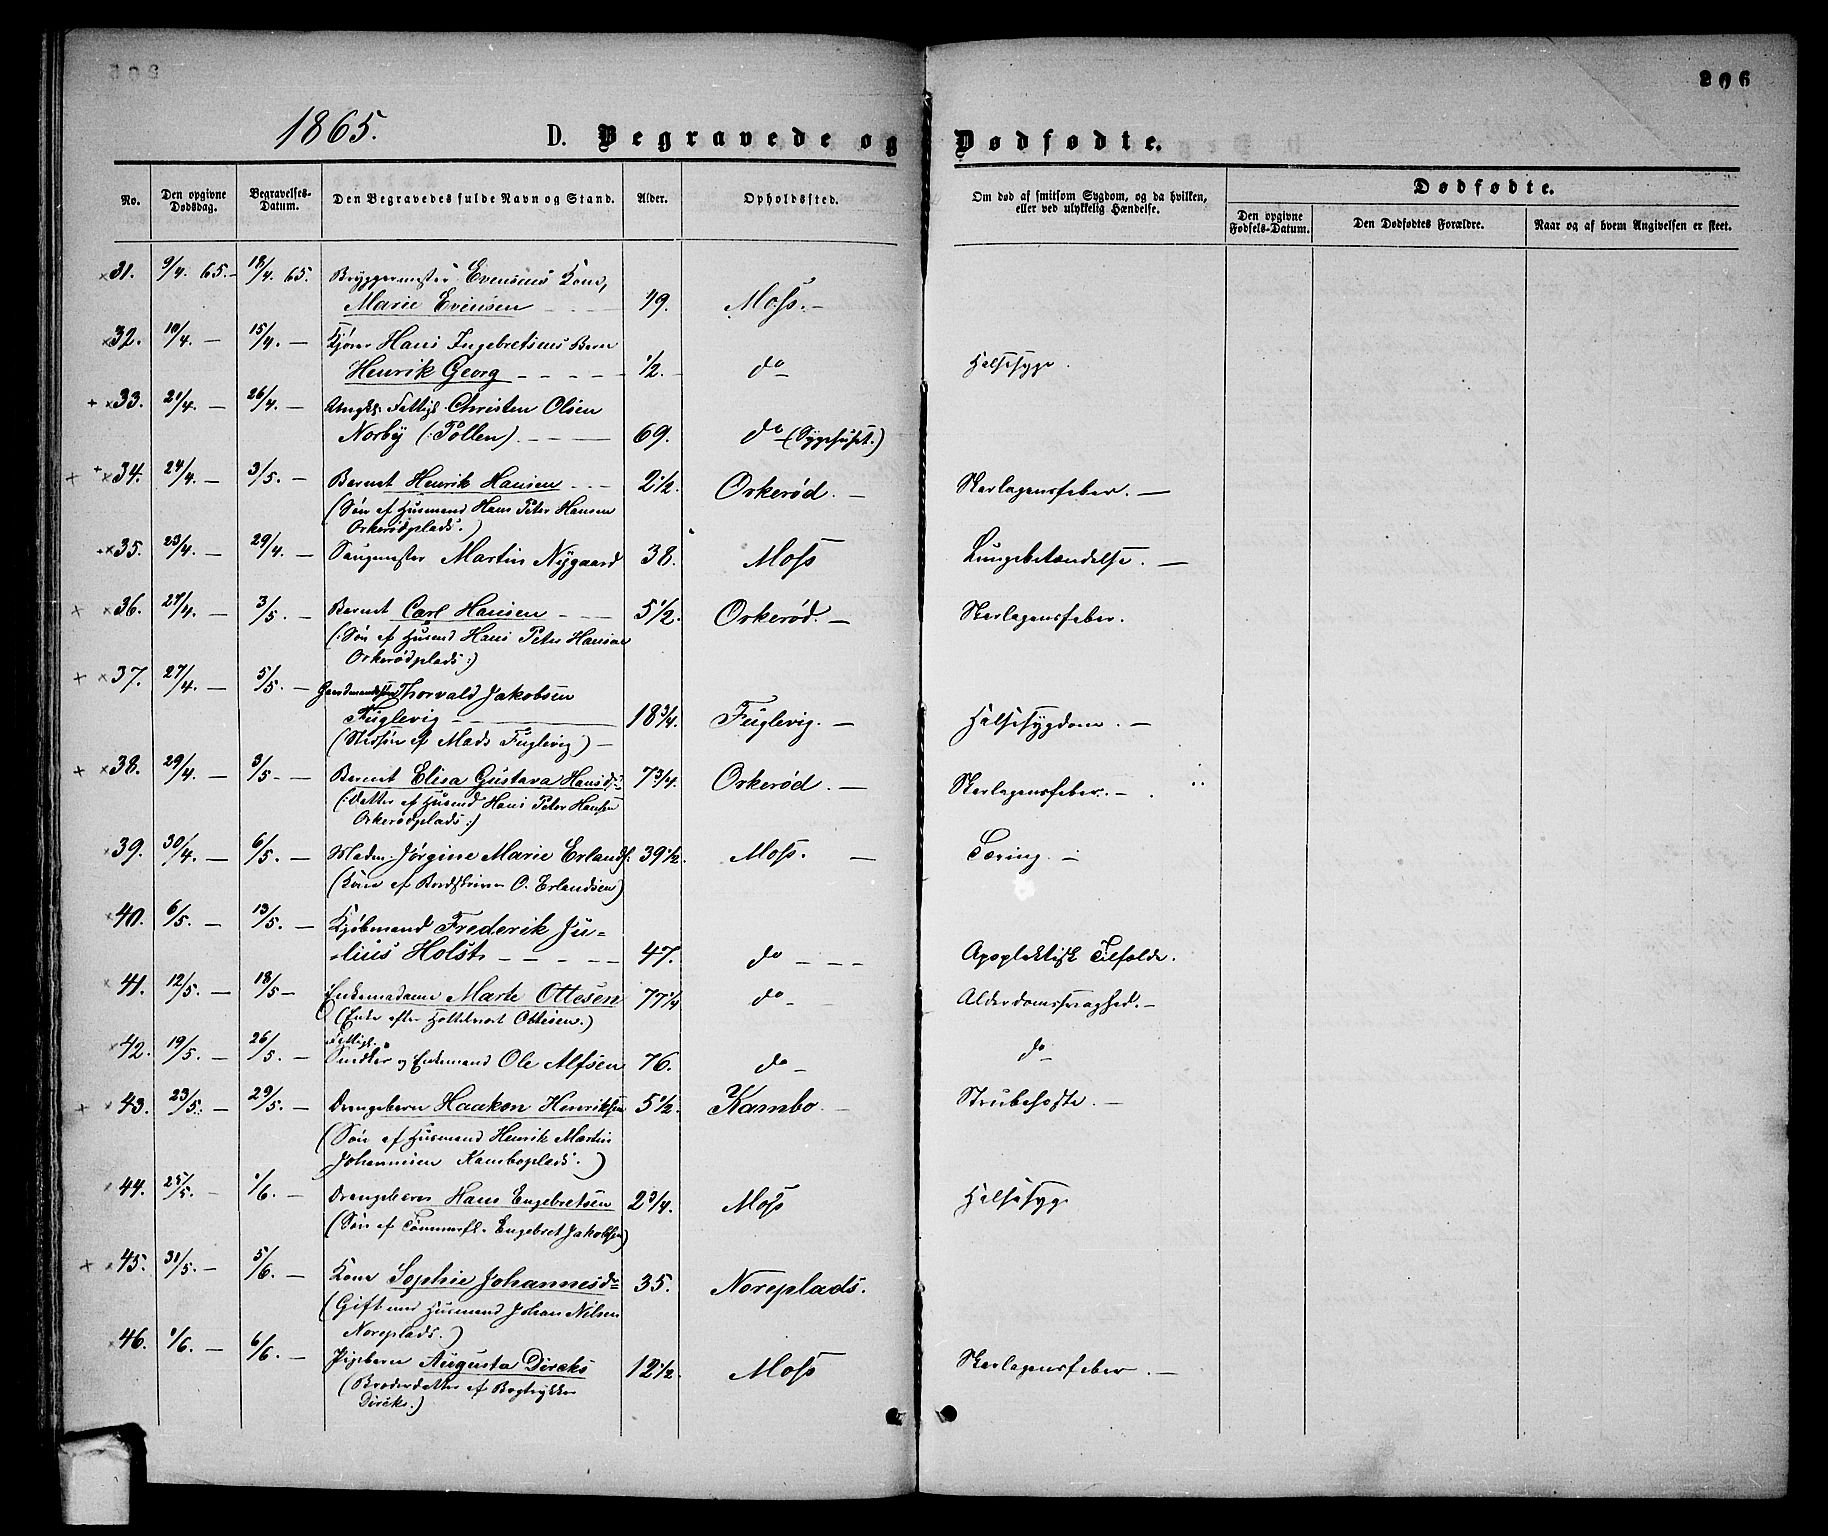 206
1865. D. Begravede og Dødfødte.
No. Den opgivne Dødsdag. Begravelses-Datum. Den Begravedes fulde Navn og Stand. Alder. Opholdssted. Om død af smitsom Sygdom, og da hvilken, eller ved ulykkelig Hændelse. Dødfødte.
Den opgivne Fødsels-Datum. Den Dødfødtes Forældre. Naar og af hvem Angivelsen er skeet.
31. 9/4. 65. 18/4. 65. Bryggermester Evensens Kone,
Marie Evensen 49. Moss.
32. 10/4. 15/4. Kjører Hans Ingebretsens Barn
Henrik Georg 1/2. do Halssyge.
33. 21/4. 26/4. Fattigl. Christen Olsen
Norby (Pollen) 69. do (Sygehuset.)
34. 24/4. 3/5. Barnet Henrik Hansen 2 1/2. Orkerød. Skarlagensfeber.
(Søn af Husmand Hans Peter Hansen
Orkerødplads.)
35. 23/4. 29/4. Saugmester Martin Nygaard 38. Moss Lungebetændelse.
36. 27/4. 3/5. Barnet Carl Hansen 5 1/2. Orkerød. Skarlagensfeber.
(Søn af Husmd Hans Peter Hansen
Orkerødplads:)
37. 27/4. 5/5. Gaardmandssøn Thorvald Jakobsen
Fuglevig 18 3/4. Fuglevig. Halssygdom.
(Stedsøn af Mads Fuglevig)
38. 29/4. 3/5. Barnet Elisa Gustava Hansd: 7 3/4. Orkerød. Skarlagensfeber.
(:Datter af Husmd Hans Peter Hansen
Orkerødplads:)
39. 30/4. 6/5. Madm. Jørgine Marie Erlands. 39 1/2. Moss. Tæring.
(Kone af Bordskriver O. Erlandsen)
40. 6/5. 13/5. Kjøbmand Frederik Ju-
lius Holst 47. do Apoplektisk Tilfælde.
41. 12/5. 18/5 Enkemadame Marte Ottesen 77 1/4 do Alderdomssvaghed.
(Enke efter Ottesen.)
42. 19/5. 26/5. Fattigl.
Snedker og Enkemand Ole Alfsen 76. do do
43. 23/5. 29/5. Drengebarn Haakon Henriksen 5 1/2. Kambo. Strubehoste.
(Søn af Husmand Henrik Martin
Johannesen Kamboplads.)
44. 25/5. 1/6. Drengebarn Hans Engebretsen 2 3/4. Moss Halssyge
(Søn af Tømmerfl. Engebret Jakobsen)
45. 31/5. 5/6. Kone Sophie Johannesd= 35. Noreplads.
(Gift med Husmand Johan Nilsen
Noreplads.)
46. 1/6. 6/6. Pigebarn Augusta Dircks 12 1/2. Moss Skarlagensfeber
(Broderdatter af Bogtrykker
Dircks.)